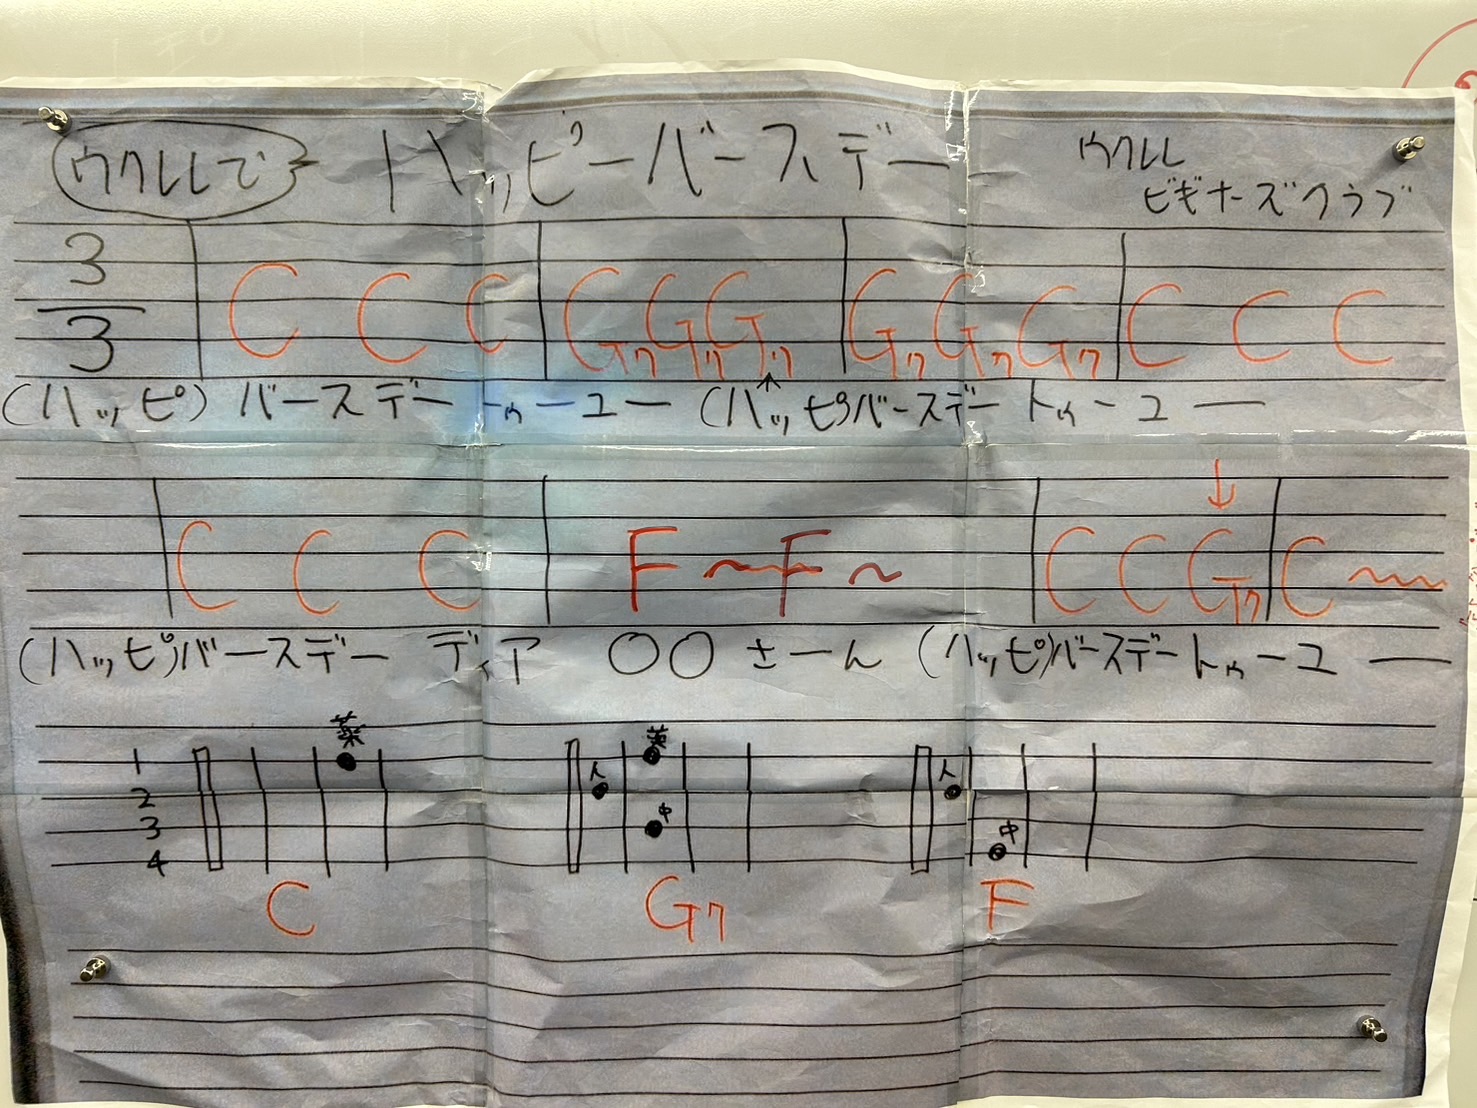 ウクレレで ハッピーバースデー ウクレレ
ビギナーズクラブ
3
3
C C C G7 G7 G7 G7 G7 G7 C C C
(ハッピ) バースデー トゥーユー (ハッピ)バースデー トゥーユー
C C C F〜F〜 C C G7 C〜
(ハッピ)バースデー ディア 〇〇さーん (ハッピ)バースデートゥーユー
薬 薬
1 人 人
2
3 中 中
4
C G7 F